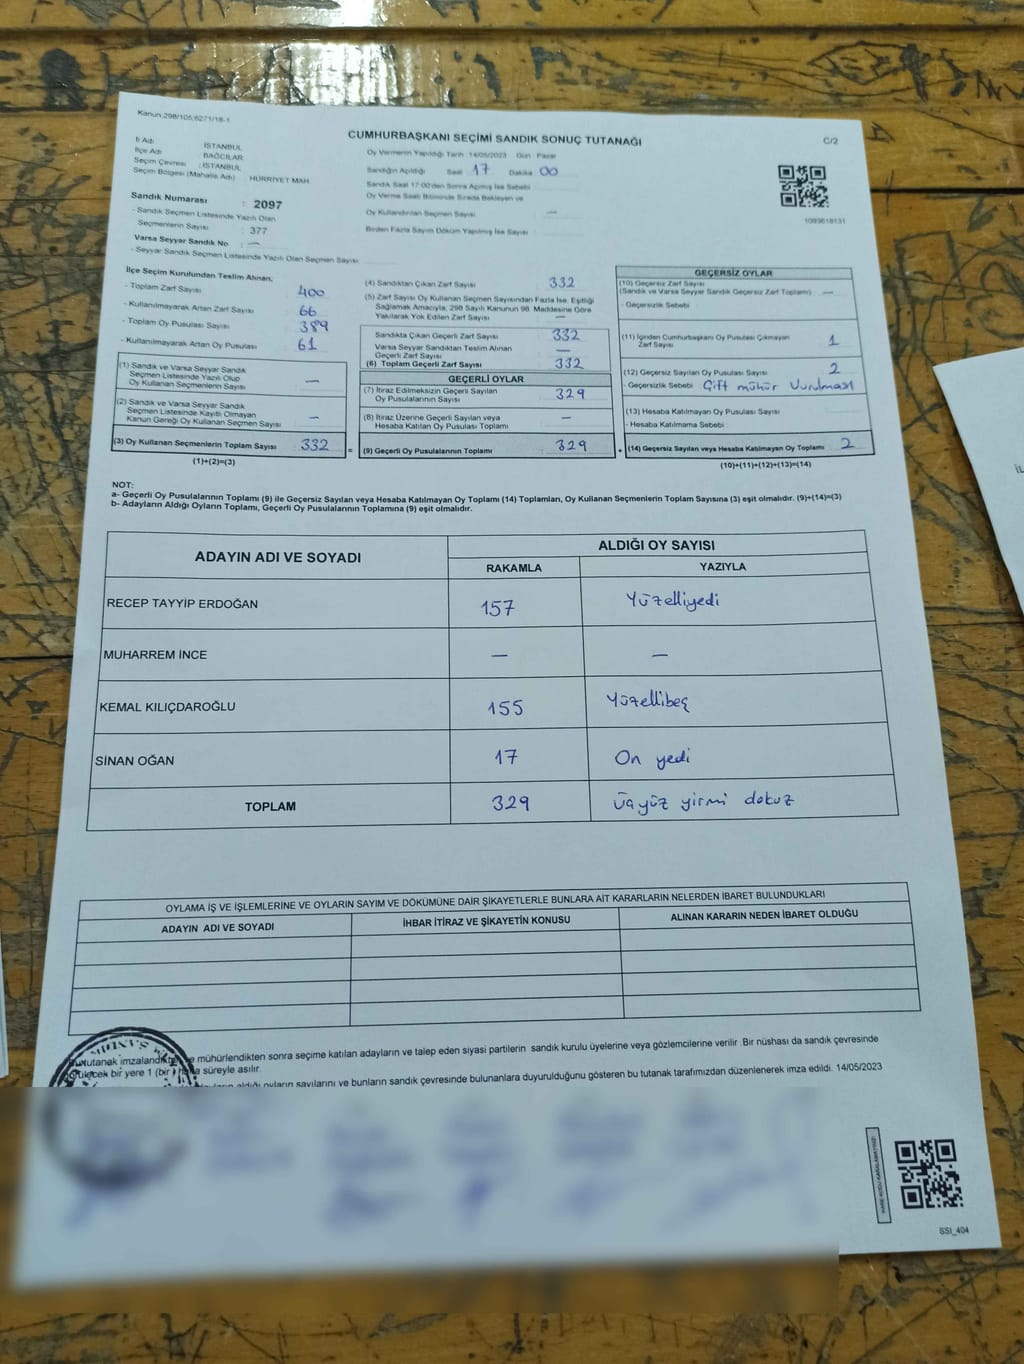 Kanun,298/105,6271/18-1
CUMHURBAŞKANI SEÇİMİ SANDIK SONUÇ TUTANAĞI
C/2
İl Adı : İSTANBUL
İlçe Adı : BAĞCILAR
Seçim Çevresi : İSTANBUL
Seçim Bölgesi (Mahalle Adı) : HÜRRİYET MAH.
Sandık Numarası : 2097
- Sandık Seçmen Listesinde Yazılı Olan
Seçmenlerin Sayısı : 377
Varsa Seyyar Sandık No : —
- Seyyar Sandık Seçmen Listesinde Yazılı Olan Seçmen Sayısı:
Oy Vermenin Yapıldığı Tarih : 14/05/2023 Gün : Pazar
Sandığın Açıldığı Saat 17 Dakika 00
Sandık Saat 17:00'den Sonra Açılmış İse Sebebi
Oy Verme Saati Bitiminde Sırada Bekleyen ve
Oy Kullandırılan Seçmen Sayısı —
Birden Fazla Sayım Döküm Yapılmış İse Sayısı
1089618131
İlçe Seçim Kurulundan Teslim Alınan;
- Toplam Zarf Sayısı 400
- Kullanılmayarak Artan Zarf Sayısı 66
- Toplam Oy Pusulası Sayısı 389
- Kullanılmayarak Artan Oy Pusulası 61
(1) Sandık ve Varsa Seyyar Sandık
Seçmen Listesinde Yazılı Olup
Oy Kullanan Seçmenlerin Sayısı —
(2) Sandık ve Varsa Seyyar Sandık
Seçmen Listesinde Kayıtlı Olmayan
Kanun Gereği Oy Kullanan Seçmen Sayısı —
(3) Oy Kullanan Seçmenlerin Toplam Sayısı 332
(1)+(2)=(3)
(4) Sandıktan Çıkan Zarf Sayısı 332
(5) Zarf Sayısı Oy Kullanan Seçmen Sayısından Fazla İse, Eşitliği
Sağlamak Amacıyla, 298 Sayılı Kanunun 98. Maddesine Göre
Yakılarak Yok Edilen Zarf Sayısı —
Sandıkta Çıkan Geçerli Zarf Sayısı 332
Varsa Seyyar Sandıktan Teslim Alınan
Geçerli Zarf Sayısı —
(6) Toplam Geçerli Zarf Sayısı 332
GEÇERLİ OYLAR
(7) İtiraz Edilmeksizin Geçerli Sayılan
Oy Pusulalarının Sayısı 329
(8) İtiraz Üzerine Geçerli Sayılan veya
Hesaba Katılan Oy Pusulası Toplamı —
= (9) Geçerli Oy Pusulalarının Toplamı 329
GEÇERSİZ OYLAR
(10) Geçersiz Zarf Sayısı
(Sandık ve Varsa Seyyar Sandık Geçersiz Zarf Toplamı) —
- Geçersizlik Sebebi :
(11) İçinden Cumhurbaşkanı Oy Pusulası Çıkmayan
Zarf Sayısı 1
(12) Geçersiz Sayılan Oy Pusulası Sayısı 2
- Geçersizlik Sebebi Çift mühür Vurulması
(13) Hesaba Katılmayan Oy Pusulası Sayısı
- Hesaba Katılmama Sebebi :
+ (14) Geçersiz Sayılan veya Hesaba Katılmayan Oy Toplamı 2
(10)+(11)+(12)+(13)=(14)
NOT:
a- Geçerli Oy Pusulalarının Toplamı (9) ile Geçersiz Sayılan veya Hesaba Katılmayan Oy Toplamı (14) Toplamları, Oy Kullanan Seçmenlerin Toplam Sayısına (3) eşit olmalıdır. (9)+(14)=(3)
b- Adayların Aldığı Oyların Toplamı, Geçerli Oy Pusulalarının Toplamına (9) eşit olmalıdır.
ADAYIN ADI VE SOYADI
ALDIĞI OY SAYISI
RAKAMLA YAZIYLA
RECEP TAYYİP ERDOĞAN 157 Yüzelliyedi
MUHARREM İNCE — —
KEMAL KILIÇDAROĞLU 155 Yüzellibeş
SİNAN OĞAN 17 On yedi
TOPLAM 329 üçyüz yirmi dokuz
OYLAMA İŞ VE İŞLEMLERİNE VE OYLARIN SAYIM VE DÖKÜMÜNE DAİR ŞİKAYETLERLE BUNLARA AİT KARARLARIN NELERDEN İBARET BULUNDUKLARI
ADAYIN ADI VE SOYADI İHBAR İTİRAZ VE ŞİKAYETİN KONUSU ALINAN KARARIN NEDEN İBARET OLDUĞU
tutanak imzalandıktan mühürlendikten sonra seçime katılan adayların ve talep eden siyasi partilerin sandık kurulu üyelerine veya gözlemcilerine verilir .Bir nüshası da sandık çevresinde
bir yere 1 (bir) hafta süreyle asılır.
aldığı oyların sayılarını ve bunların sandık çevresinde bulunanlara duyurulduğunu gösteren bu tutanak tarafımızdan düzenlenerek imza edildi. 14/05/2023
SSİ_404